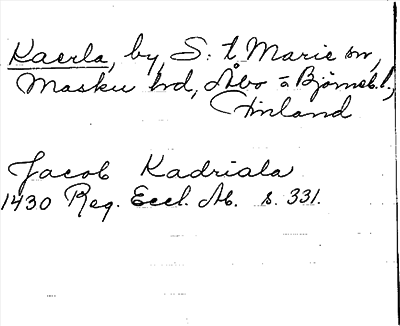 Kaerla, by, S:t Marie sn,
Masku hd, Åbo o Björneb. l.,
Finland
Jacob Kadriala
1430 Reg. Eccl. Ab. s. 331.